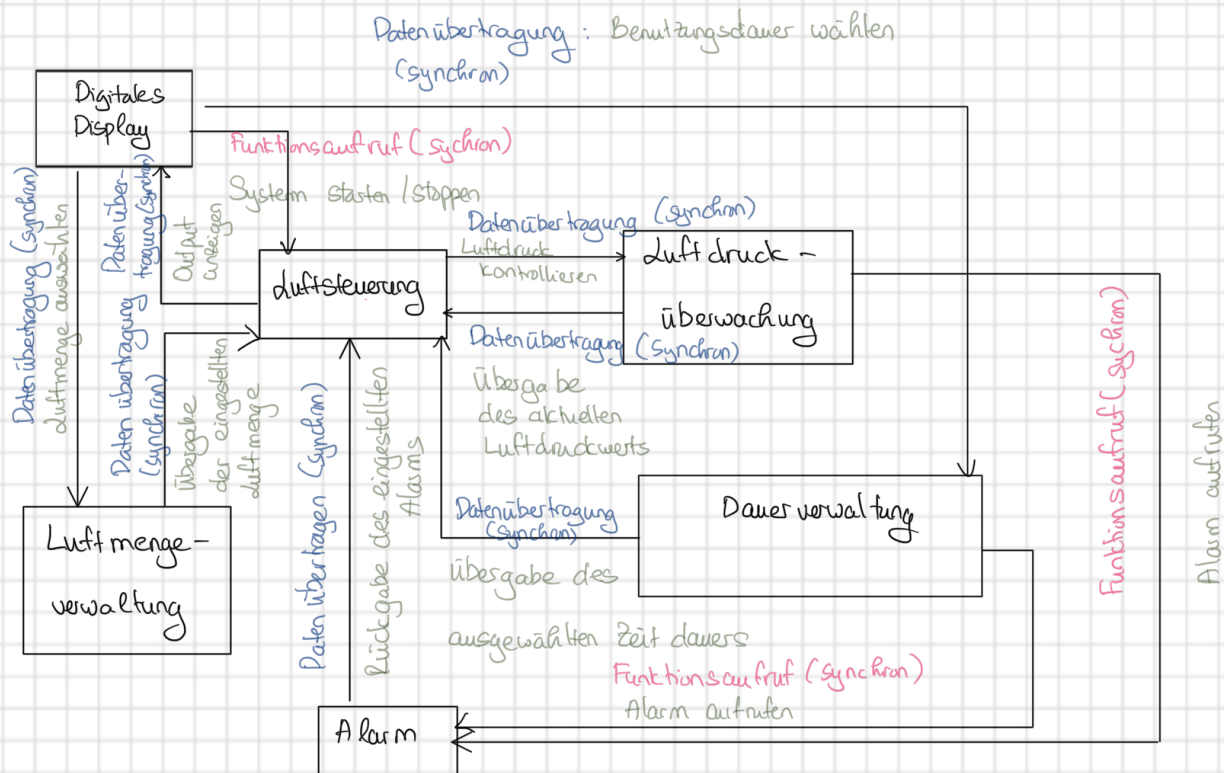 Datenübertragung : Benutzungsdauer wählen
(synchron)
Digitales
Display
Funktionsaufruf (sychron)
System starten / stoppen
Datenübertragung (synchron)
Luftmenge auswählen
Datenüber-
tragung (synchron)
Output
anzeigen
Datenübertragung (synchron)
Luftdruck
kontrollieren
Luftsteuerung
Luftdruck -
überwachung
Datenübertragung (synchron)
Übergabe
des aktuellen
Luftdruckwerts
Daten übertragung
(synchron)
Übergabe
der eingestellten
Luftmenge
Daten übertragen (synchron)
Rückgabe des eingestellten
Alasms
Funktionsaufruf (sychron)
Alarm aufrufen
Luftmenge -
verwaltung
Datenübertragung
(synchron)
Übergabe des
ausgewählten Zeit dauers
Dauerverwaltung
Funktionsaufruf (synchron)
Alarm aufrufen
Alarm